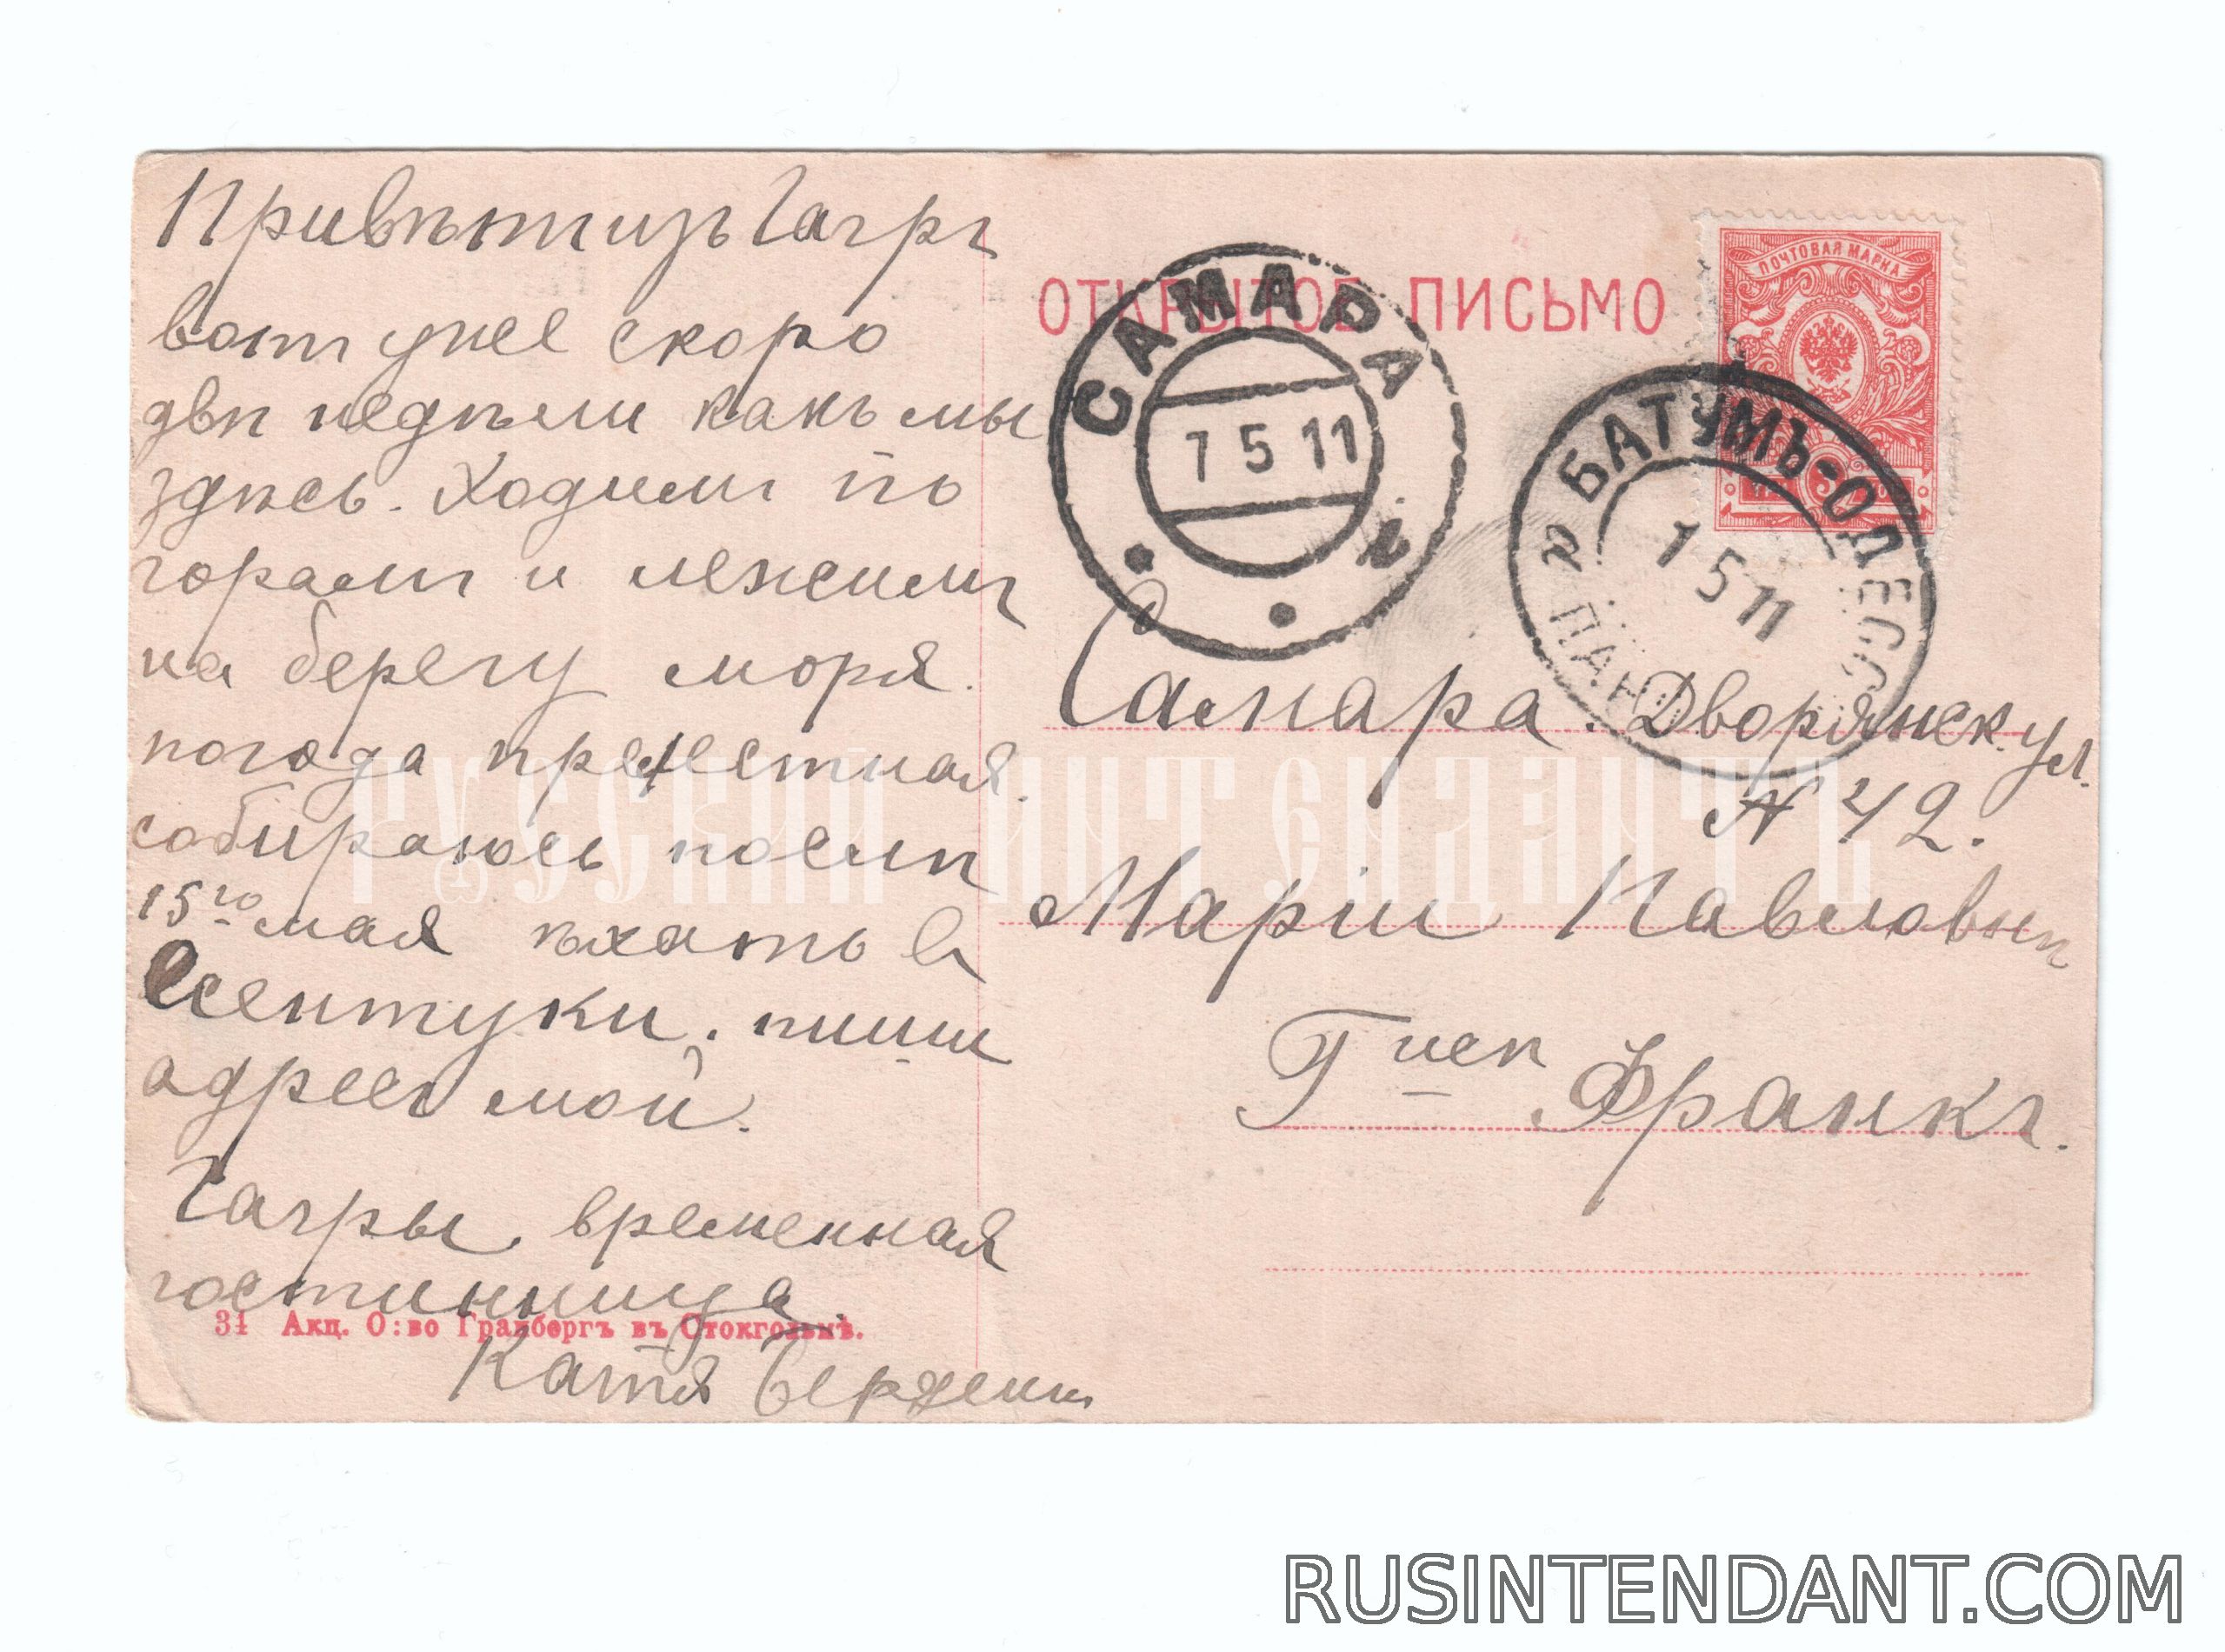 Привѣт изъ Гагръ
вотъ уже скоро
двѣ недѣли какъ мы
здѣсь. Ходимъ по
горамъ и лежимъ
на берегу моря.
погода прелестная.
собираюсь послѣ
15го мая ѣхать въ
Есентуки. пиши
адресъ мой.
Гагры. временная
гостинница.
Катя
34 Акц. О:во Гранбергъ въ Стокгольмѣ.
ОТКРЫТОЕ ПИСЬМО
ПОЧТОВАЯ МАРКА
САМАРА
7 5 11
БАТУМЪ-ОДЕСС
1 5 11
Самара. Дворянск. ул.
N 42.
Маріи Павловнѣ
Г-жѣ Франкъ.
РУССКИЙ ИНТЕНДАНТЪ
RUSINTENDANT.COM